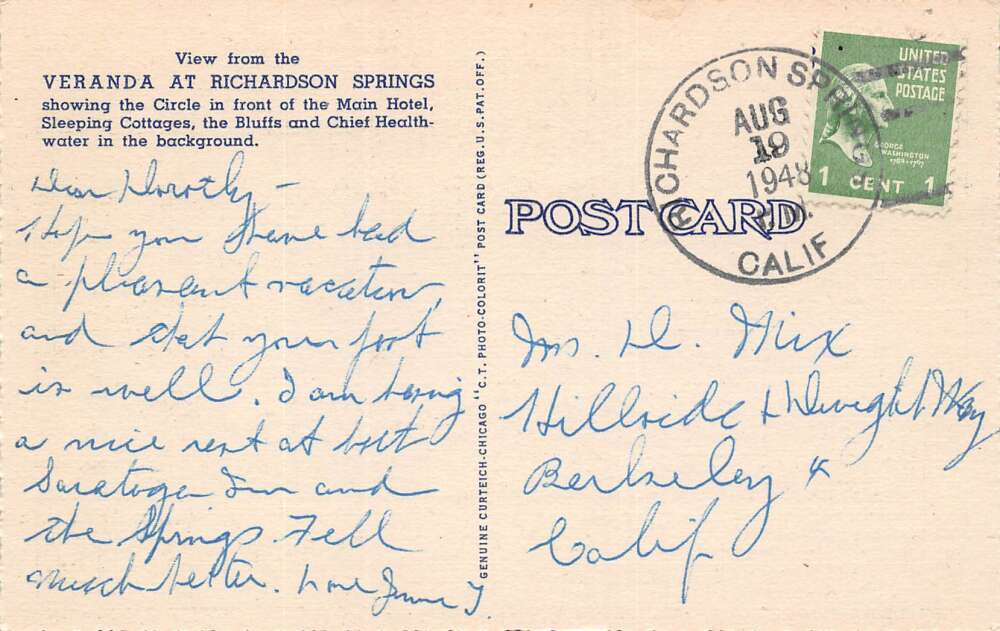 View from the
VERANDA AT RICHARDSON SPRINGS
showing the Circle in front of the Main Hotel,
Sleeping Cottages, the Bluffs and Chief Health-
water in the background.
Dear Dorothy –
Hope you have had
a pleasant vacation,
and that your foot
is well. I am having
a nice rest at both
Saratoga Inn and
the Springs. Feel
much better. Love
GENUINE CURTEICH-CHICAGO "C.T. PHOTO-COLORIT" POST CARD (REG. U.S. PAT. OFF.)
POST CARD
RICHARDSON SPRINGS
AUG
19
1948
P.M.
CALIF
UNITED
STATES
POSTAGE
GEORGE
WASHINGTON
1789-1797
1 CENT 1
D. Mix
Hillside & Dwight Way
Berkeley 4
Calif